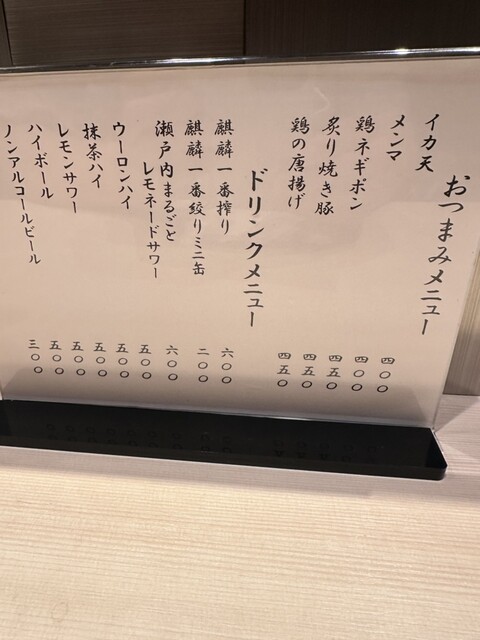 おつまみメニュー
イカ天 四〇〇
メンマ 四〇〇
鶏ネギポン 四五〇
炙り焼き豚 四五〇
鶏の唐揚げ 四五〇
ドリンクメニュー
麒麟一番搾り 六〇〇
麒麟一番絞りミニ缶 二〇〇
瀬戸内まるごと 六〇〇
レモネードサワー 五〇〇
ウーロンハイ 五〇〇
抹茶ハイ 五〇〇
レモンサワー 五〇〇
ハイボール 五〇〇
ノンアルコールビール 三〇〇